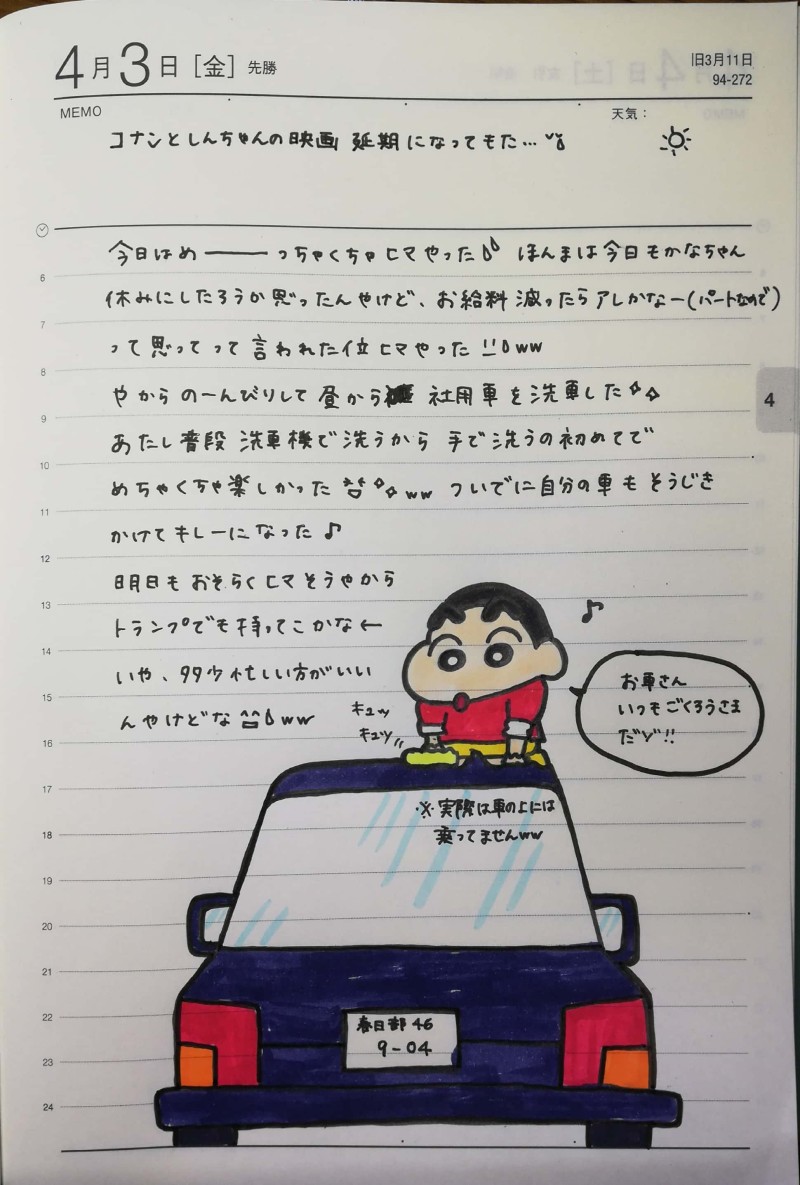 4月3日[金]先勝
旧3月11日
94-272
MEMO
天気:
コナンとしんちゃんの映画 延期になってもた…
今日はめ───っちゃくちゃヒマやった ほんまは今日もかなちゃん
休みにしたろうか思ったんやけど、お給料減ったらアレかなー(パートなので)
って思ってって言われた位ヒマやった ww
やからのーんびりして昼から 社用車を洗車した
あたし普段洗車機で洗うから手で洗うの初めてで
めちゃくちゃ楽しかった ww ついでに自分の車もそうじき
かけてキレーになった♪
明日もおそらくヒマそうやから
トランプでも持ってこかな←
いや、多少忙しい方がいい
んやけどな ww
♪
お車さん
いつもごくろうさま
だゾ!!
キュッ
キュッ
※実際は車の上には
乗ってませんww
春日部 46
9-04
4
6
7
8
9
10
11
12
13
14
15
16
17
18
19
20
21
22
23
24